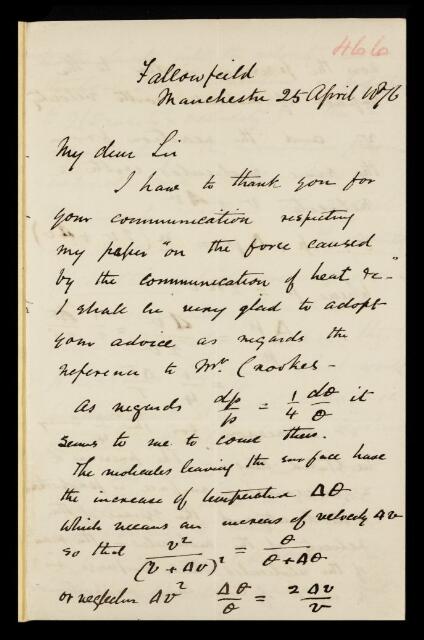 466
Fallowfeild
Manchester 25 April 1876
My dear Sir
I have to thank you for
your communication respecting
my paper "on the force caused
by the communication of heat &c"-
I shall be very glad to adopt
your advice as regards the
reference to Mr. Crookes -
As regards dp/p = 1/4 dθ/θ it
seems to me to come thus.
The molecules leaving the surface have
the increase of temperature Δθ
which means an increas of velocity Δv
so that v²/(v + Δv)² = θ/θ+Δθ
or neglectin Δv² Δθ/θ = 2Δv/v